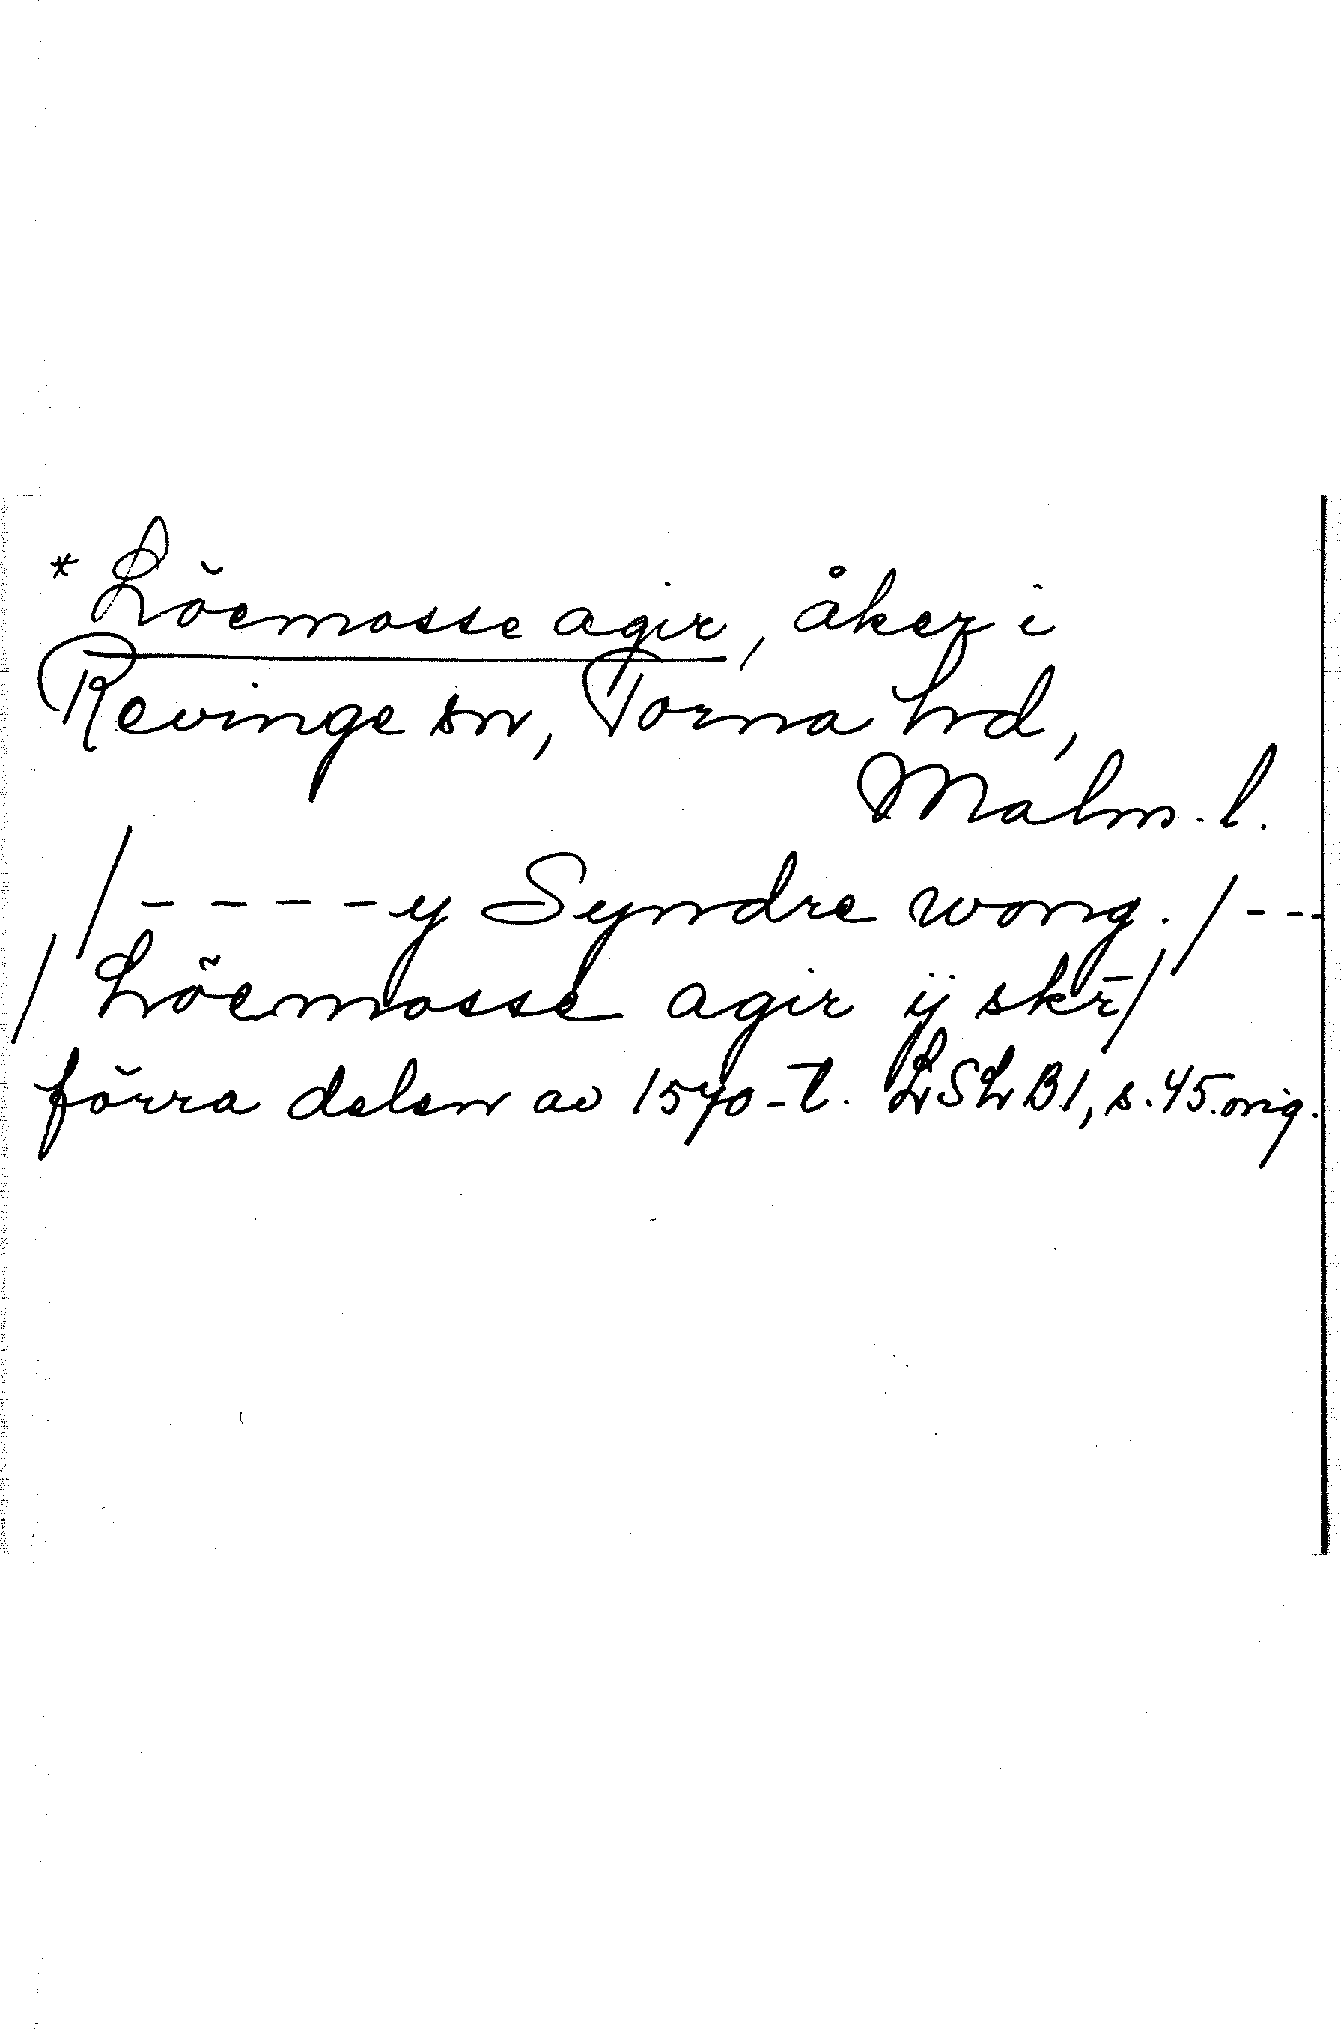 *Löemosse agir, åker i
Revinge sn, Torna hd,
Malm. l.
/ - - - - y Syndre wong. / - - -
/ Löemosse agir ij skr̄ /
förra delen av 1570-t. LSLB1, s. 45. orig.